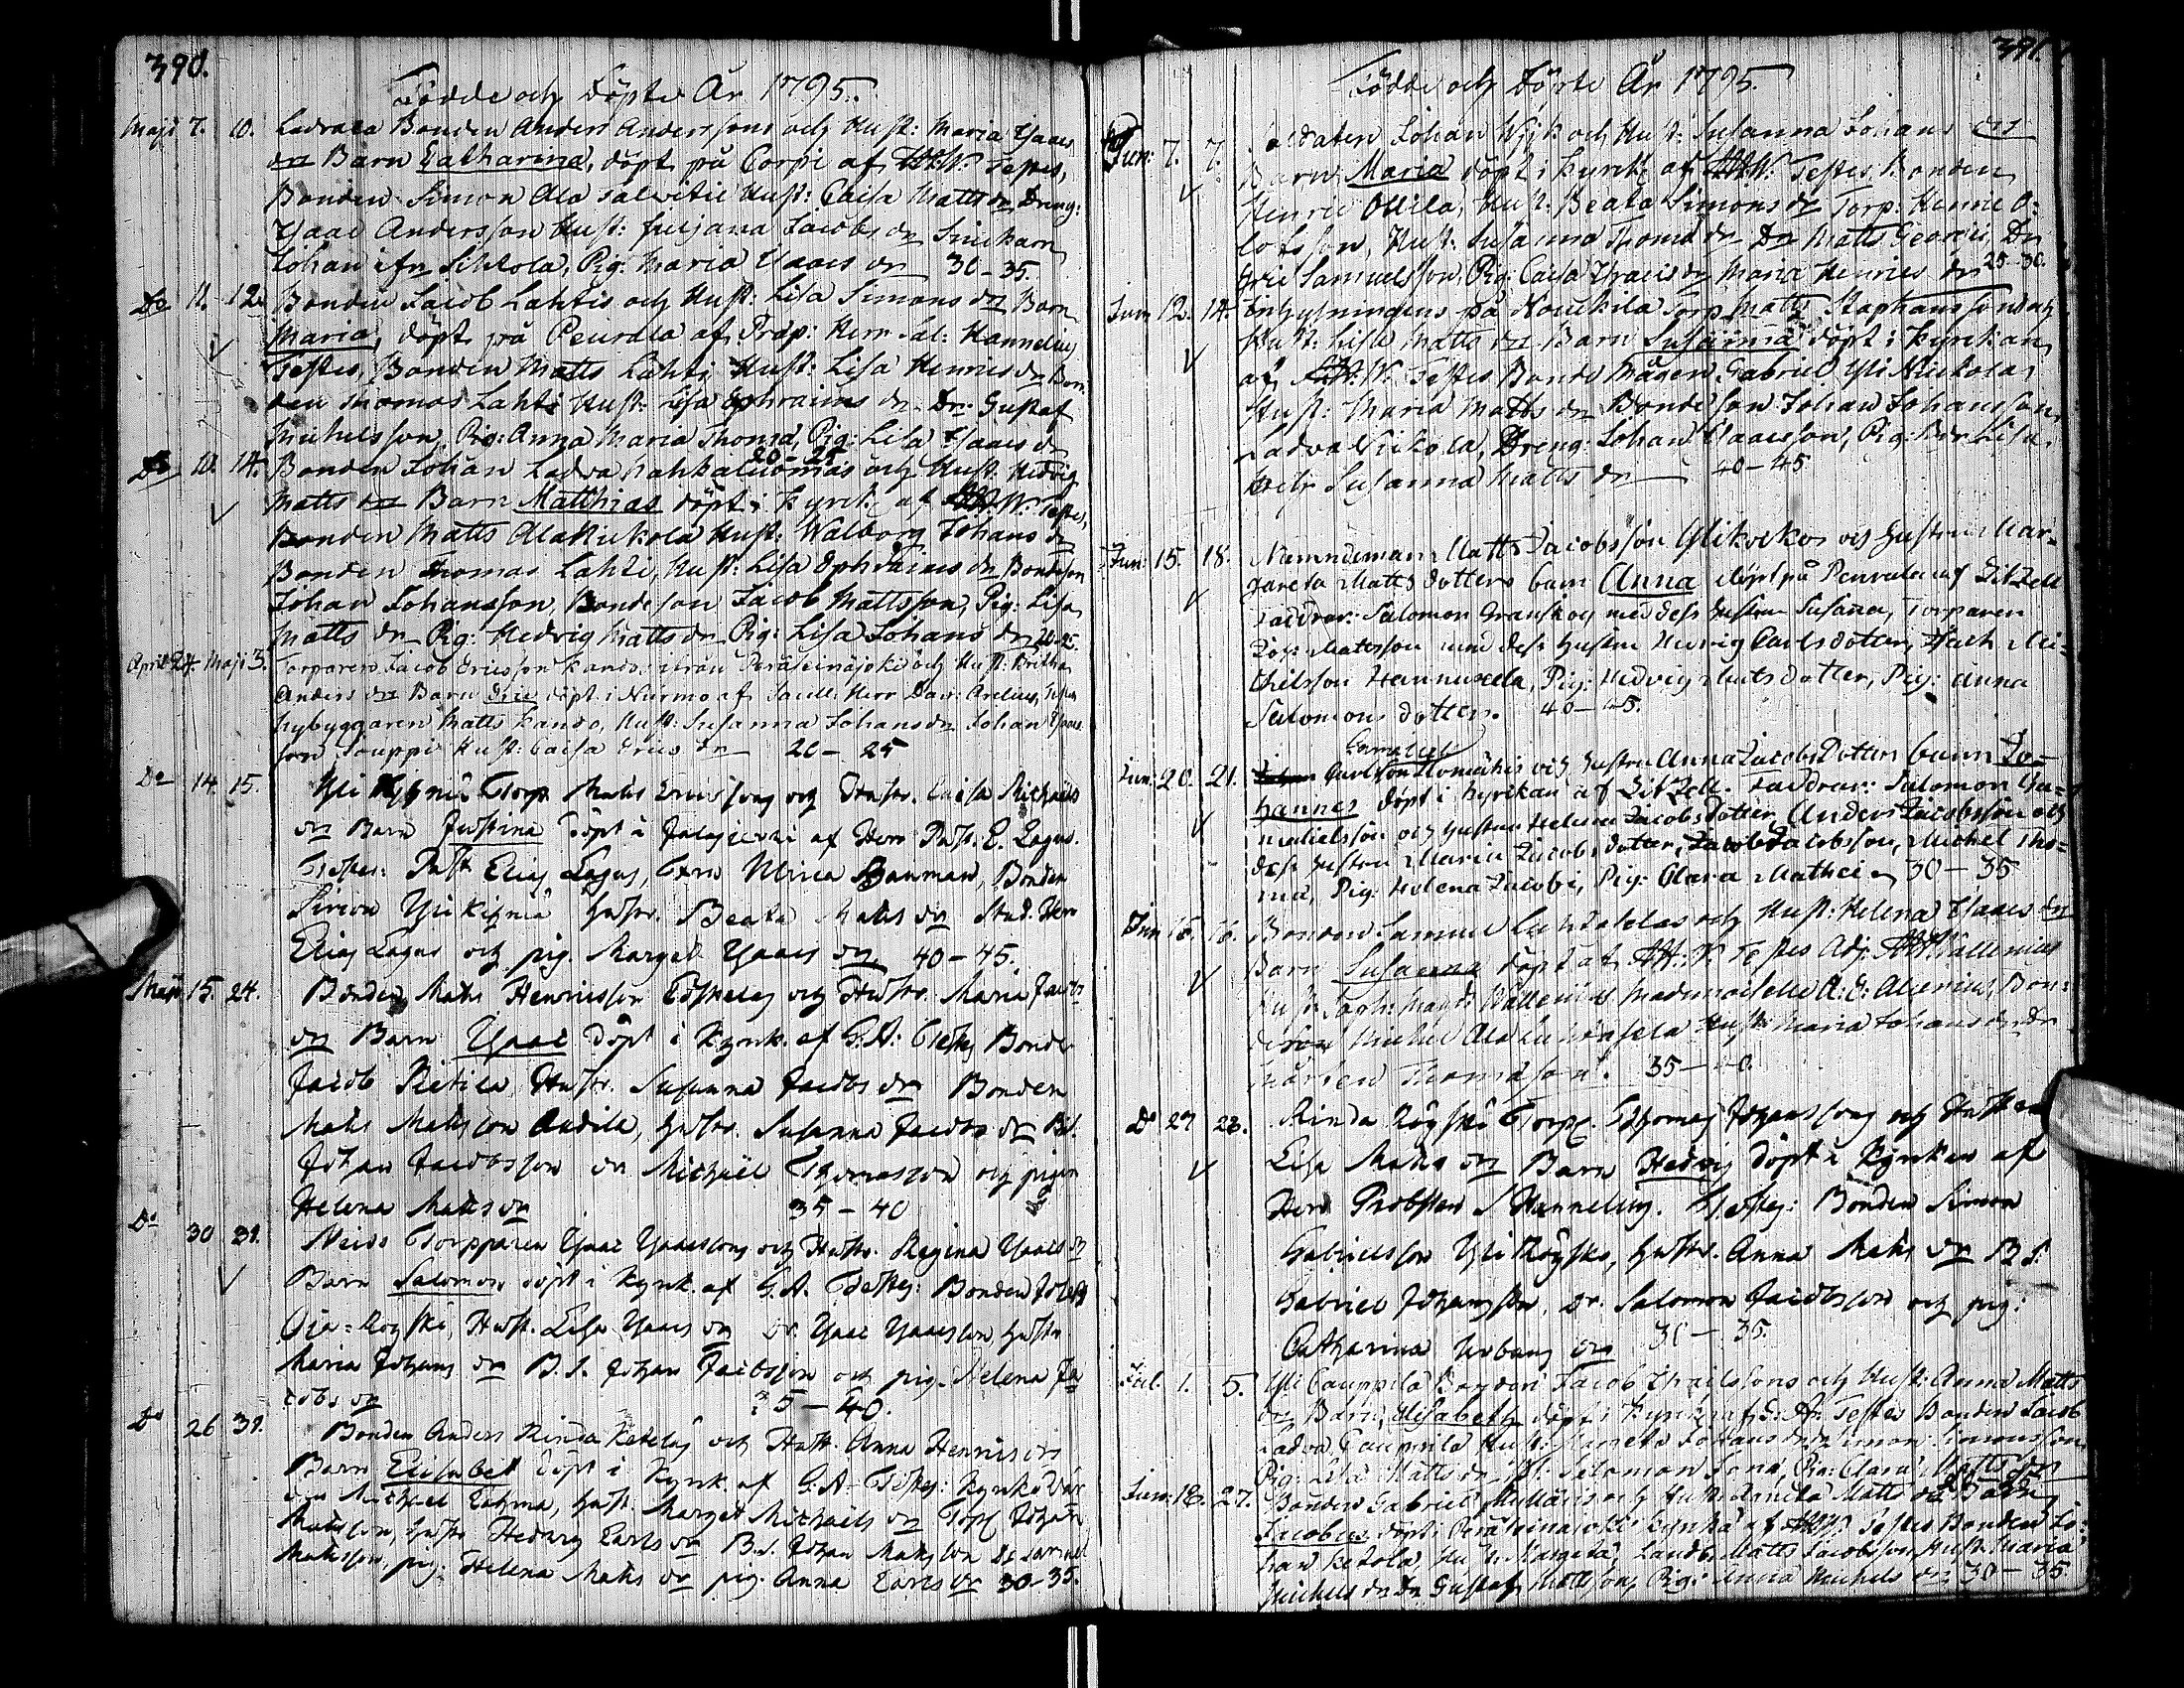 390.
Födde och Döpte År 1795.
Maji 7. 10. Ladvala Bonden Anders Anderssons och Hust: Maria Isaacs
dr Barn Catharina, döpt på Corpi af A.H.W. Testes,
Bonden Simon Ala Talvitie Hust: Caisa Matts dr Dreng:
Isaac Andersson Hust: Juliana Jacobs dr
Johan Sikkola, Pig: Maria Isaacs dr 30-35.
Do 11. 12. Bonden Jacob Lahtis och Hust: Lisa Simons dr Barn
Maria, döpt på Peurala af Prop: Herr Sal: Hannelius
Testes, Bonden Matts Lahti Hust: Lisa Henrics dr Bon
den Thomas Lahti Hust: Lisa Ephraims dr Dr: Gustaf
Michelsson, Pig: Anna Maria Thoma, Pig: Lisa Isaacs dr
20-25
Do 10. 14. Bonden Johan Ladva Hahkaluomas och Hust Hedvig
Matts dr Barn Matthias döpt i Kyrk: af A.H.W. Testes,
Bonden Matts AlaNickola Hust: Walborg Johans dr
Bonden Thomas Lahti, Hust: Lisa Ephraims dr Bondeson
Johan Johansson, Bondeson Jacob Mattsson, Pig: Lisa
Matts dr Pig: Hedvig Matts dr Pig: Lisa Johans dr 20-25.
April 24 Maji 3. Torparens Jacob Ericsson Kando ifrån Peräseinäjoki och Hust: Britha
Anders dr Barn Eric döpt i Nurmo af Sacell: Herr Dav: Arelius, Testes
Nybyggaren Matts Kando, Hust: Susanna Johans dr Johan Isaac
son Jouppi Hust: Caisa Erics dr 20-25
Do 14. 15. Yli Torp Matts Ericssons och Hustr. Caisa Michaels
dr Barn Justina döpt i af Herr Past: E. Lagus.
Testes: Past Elias Lagus, Fru Ulrica Bauman, Bonden
Simon Hustr. Beata Matts dr Stud. Herr
Elias Lagus och pig. Marget Isaacs dr. 40-45.
Maji 15. 24. Bonden Matts Henricsson och Hustr. Maria Jacobs
dr Barn Isaac döpt i Kyrk. af G.A: Testes Bonde
Jacob Hustr. Susanna Jacobs dr Bonden
Matts Mattsson Andila, Hustr. Susanna Jacobs dr BS.
Johan Jacobsson dr Michaël Thomasson och pigan
Helena Matts dr 35-40
Do 30 31. Torpparen Isaac Isaacssons och Hustr. Regina Isaacs dr
Barn Salomon döpt i Kyrk. af G.A. Testes: Bonden Joseph
Oja=Röyski, Hust. Lisa Isaacs dr dr Isaac Isaacsson, Hustr
Maria Johans dr B.S. Johan Jacobsson och pig. Helena Ja
cobs dr 35-40.
Do 26 31. Bonden Anders Rinda Ketelas och Hust. Anna Henrics dr
Barn Elisabet döpt i Kyrk. af G.A. Testes: Kyrkovär
den Michael Hust. Marget Michaels dr Torp Johan
Mattsson, Hustr Hedwig Carls dr B.S. Johan Mattsson Dr Samuel
Mattsson, pig: Helena Matts dr pig. Anna Carls dr 30-35.
391.
Födde och Döpte År 1795.
Jun: 7. 7. Soldaten Johan Wijk och Hust: Susanna Johans drs
Barn Maria döpt i Kyrk: af A.H.W. Testes Bonden
Henric Ollila, Hust: Beata Simons dr Torp: Henric O:
lofsson, Hust: Susanna Thoma dr Dr Matts Georgii, Dr
Eric Samuelsson, Pig: Caisa Isacs dr Maria Henrics dr 25-30.
Jun 12. 14. Inhysningens på Nouckila Torp Matts Staphanssons och
Hust: Lisa Matts dr Barn Susanna döpt i Kyrkan
af A.H.W. Testes Bonde Mågen Gabriel Yli Nickola,
Hust: Maria Matts dr Bondeson Johan Johansson
Ladva Nickola, Dreng: Johan Isaacsson, Pig:
och Susanna Matts dr 40-45
Jun: 15. 18. Nämndeman Matts Jacobsson Ylikoskos och Hustru Mar-
gareta Matts dotters barn Anna döpt på Peurala af Zit Zell
Faddrar: Salomon Granskog med dess Hustru Susana, Torparen
Joh: Mattsson med dess Hustru Hedvig Carlsdotter, Math Mi-
chelsson Hannuxela, Pig: Hedvig Mats dotter, Pig: Anna
Salomons dotter. 40-45.
Gamaliel
Jun: 20. 21. Carlsson Homähis och Hustru Anna Jacobs Dotters barn Jo-
hannes döpt i kyrkan af Zit Zell. Faddrar: Salomon Ga-
malielsson och Hustru Helena Jacobs Dotter, Anders Jacobsson och
dess Hustru Maria Jacobs dotter, Jacob Jacobsson, Michel Tho-
mæ, Pig: Helena Jacobi, Pig: Clara Mathei 30-35
Jun 16. 16. Bonden Samuel Luhdahlas och Hust: Helena Isaacs dr
Barn Susanna döpt af A.H.W. Testes Adj: A.H. Wallenius
Hust: Soph: Magd: Wallenius Mademoiselle A: E: Alcenius, Bon:
deson Michel Ala Luhdahela Hust: Maria Johans dr Dr
Mårten Thomasson. 35-40.
Do 27 28. Rinda Röyski Torp. Thomas Johanssons och Hustrus
Lisa Matts dr Barn Hedvig döpt i Kyrkan af
Herr Probsten S Hannelius. Testes: Bonden Simon
Gabrielsson Yli Röyski, Hustr. Anna Matts dr B.S.
Gabriel Johansson, Dr. Salomon Jacobsson och pig:
Catharina Urbans dr 30-35.
Jul. 1. 5. Yli Cauppila Bonden Jacob Isacssons och Hust: Anna Matts
dr Barn, Elisabeth döpt i Kyrkan af G. A: Testes Bonden Jacob
Ladva Cauppila Hust: Margeta Johans dr Dr Simon Simonsson
Pig: Lisa Matts dr Salomon Pig: Clara Matts dr
Jun: 18. 27. Bonden Gabriel Mylläris och Hust: Margeta Matts dr Barn
Jacobus döpt i Peräseinäjoki Kyrka af A.H.W. Testes Bonden Jo:
han Ketola Hust: Margeta, Landb: Matts Jacobsson Hust: Maria
Michels dr Dr Gustaf Mattsson, Pig: Anna Michels dr 30-35